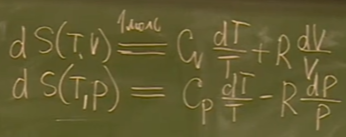 d S(T,V) \overset{1 моль}{=} C_V \frac{dT}{T} + R \frac{dV}{V}
d S(T,p) = C_p \frac{dT}{T} - R \frac{dp}{p}